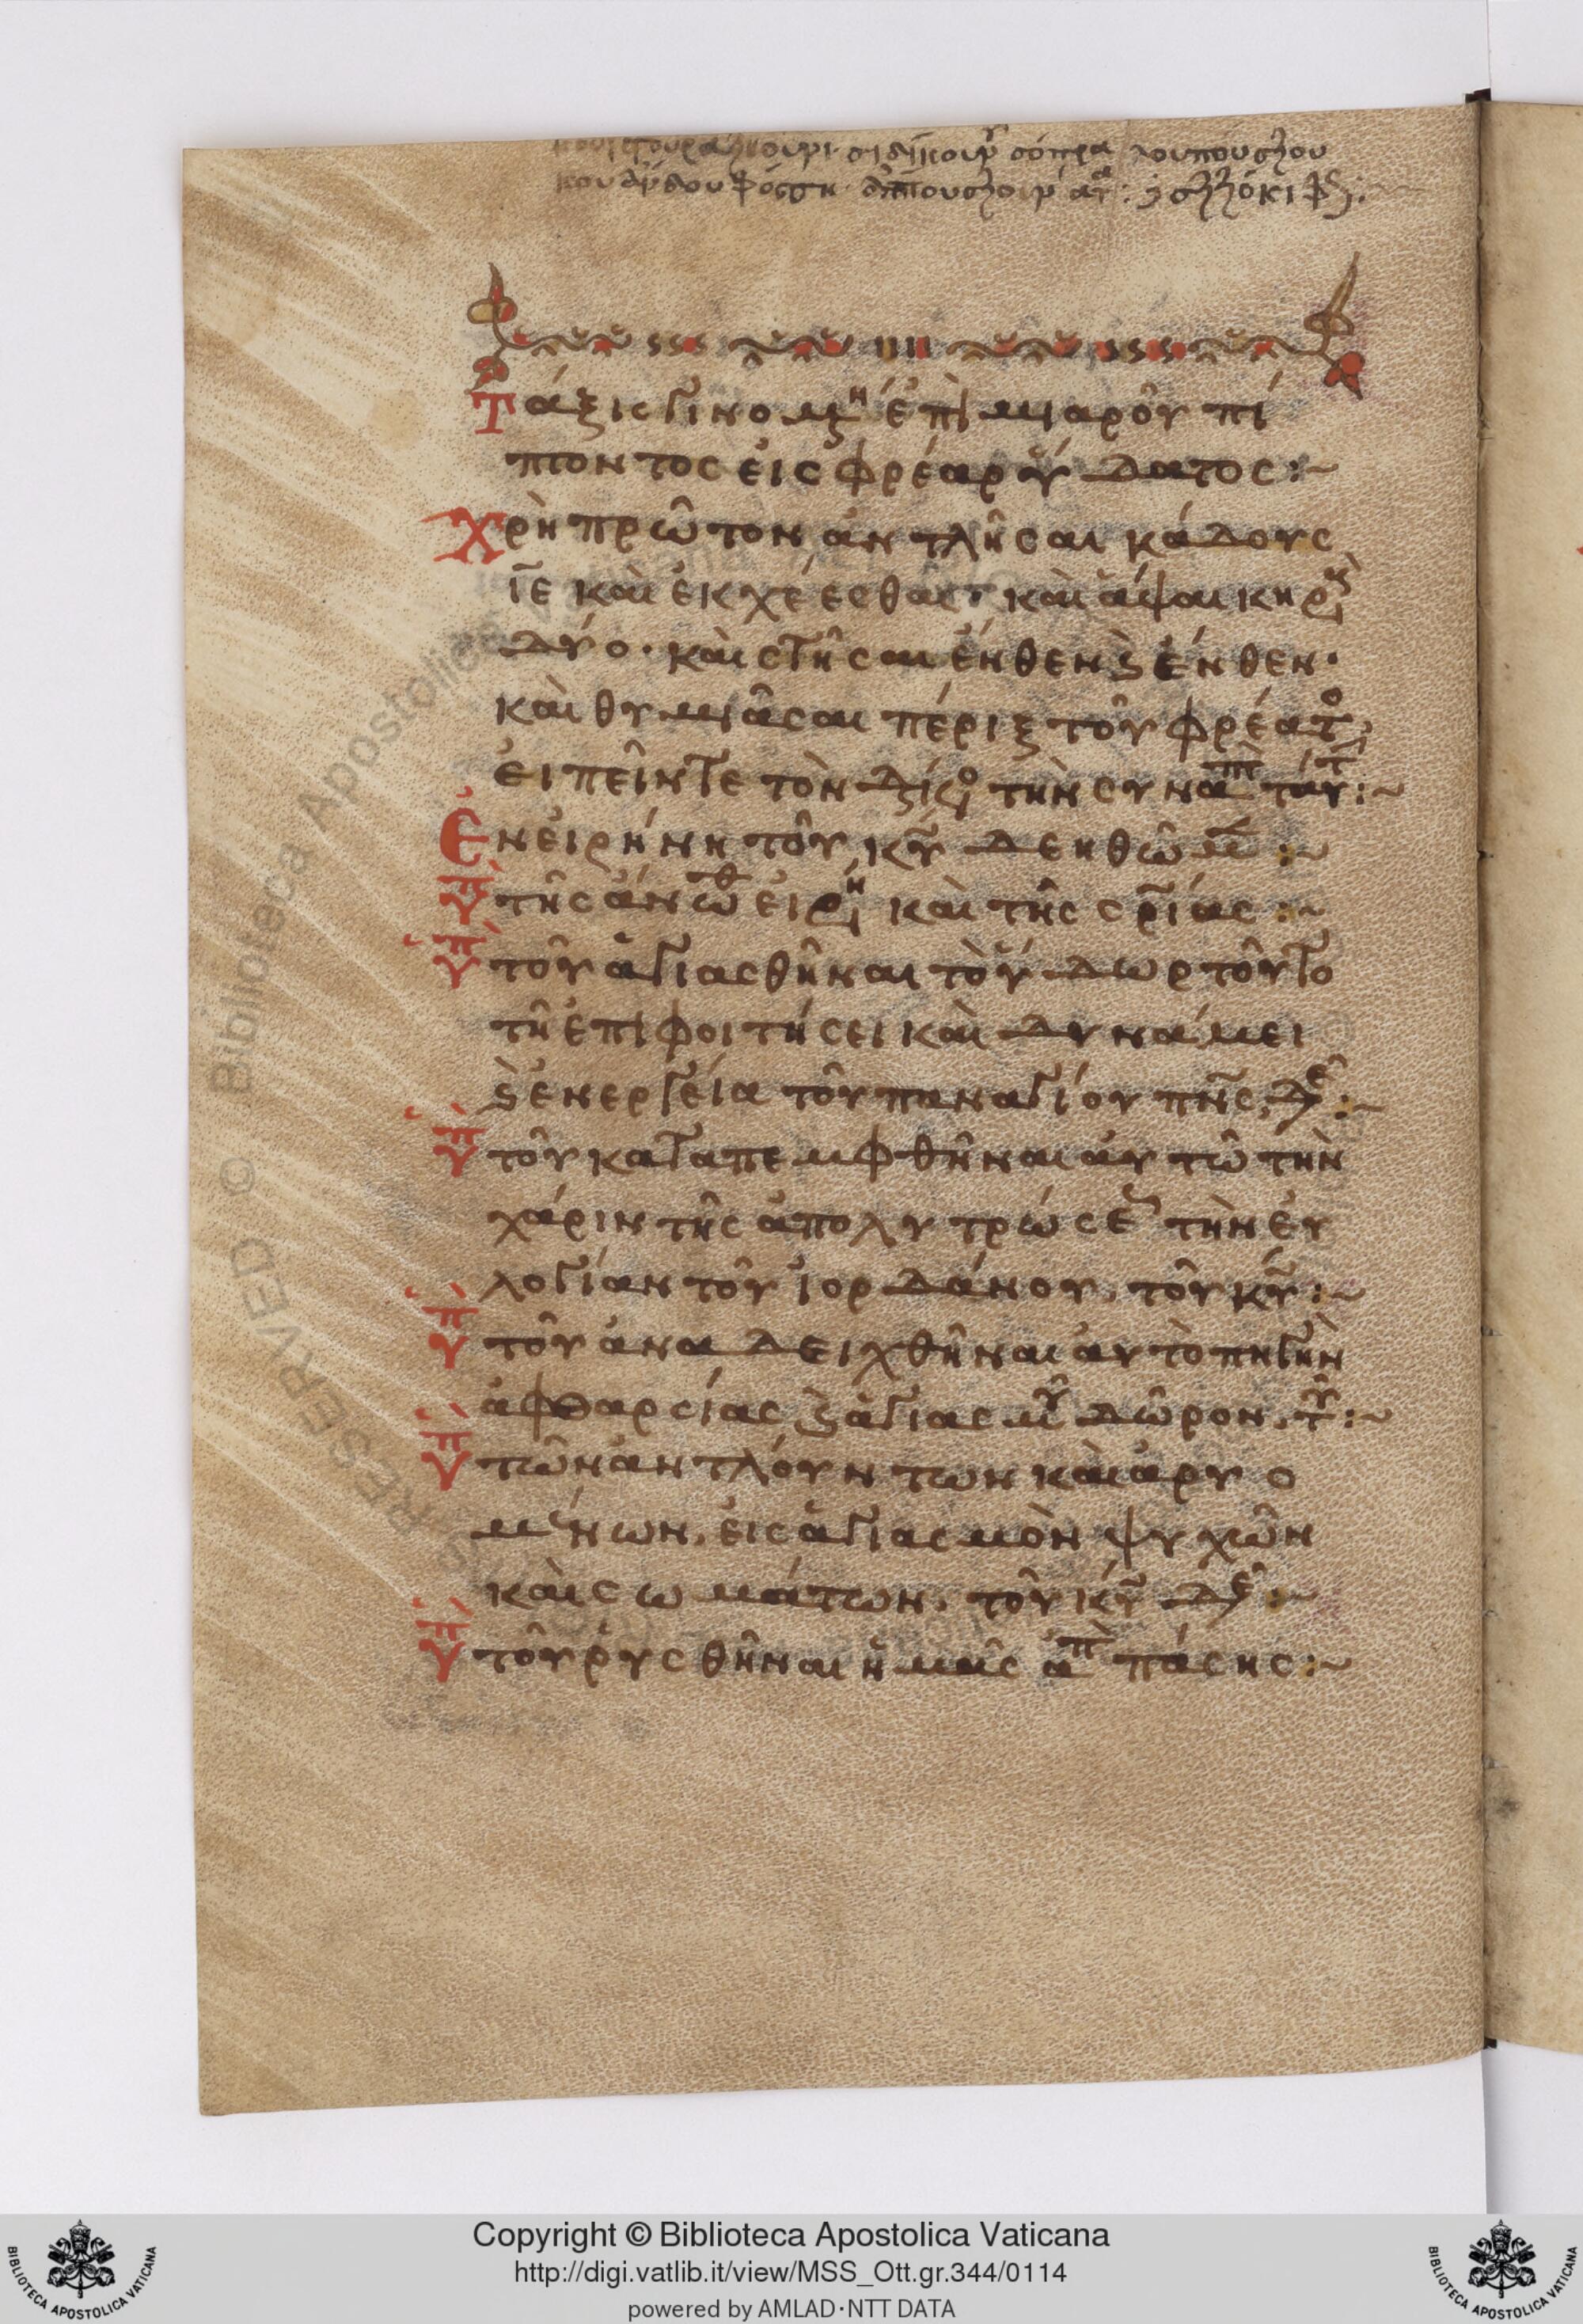 σόπρα λουπούσλου
Τάξις γινομ(έν)η ἐπὶ μιαροῦ πί
πτοντος εἰς φρέαρ ὕδατος :~
Χρὴ πρῶτον ἀντλῆσαι κάδους
ιε καὶ ἐκχέεσθαι· καὶ ἅψαι κηρ
δύο· καὶ στῆσαι ἔνθεν ϗ ἔνθεν·
καὶ θυμιᾶσαι πέριξ τοῦ φρέατο
εἰπεῖν τε τὸν τὴν συναπτ ταύτ :~
Ἐν εἰρήνη τοῦ κυ δεηθῶμ :~
Ὑπ τῆς ἄνωθ εἰρη καὶ τῆς σρίας :~
Ὑπ τοῦ ἁγιασθῆναι τὸ ὕδωρ τοῦτο
τῆ ἐπιφοιτήσει καὶ δυνάμει
ϗ ἐνεργεία τοῦ παναγίου πνς, δε :~
Ὑπ τοῦ καταπεμφθῆναι αὐτῶ τὴν
χάριν τῆς ἀπολυτρώσε τὴν εὐ
λογίαν τοῦ ἰορδάνου, τοῦ κυ :~
Ὑπ τοῦ ἀναδειχθῆναι αὐτὸ πηγὴν
ἀφθαρσίας ϗ ἁγιασμοῦ δῶρον, τοῦ :~
Ὑπ τῶν ἀντλούντων καὶ ἀρυο
μένων, εἰς ἁγιασμὸν ψυχῶν
καὶ σωμάτων, τοῦ κυ δε :~
Ὑπ τοῦ ῥυσθῆναι ἡμᾶς ἀπ πάσης :~
Copyright © Biblioteca Apostolica Vaticana
http://digi.vatlib.it/view/MSS_Ott.gr.344/0114
powered by AMLAD·NTT DATA
BIBLIOTECA APOSTOLICA VATICANA
BIBLIOTECA APOSTOLICA VATICANA